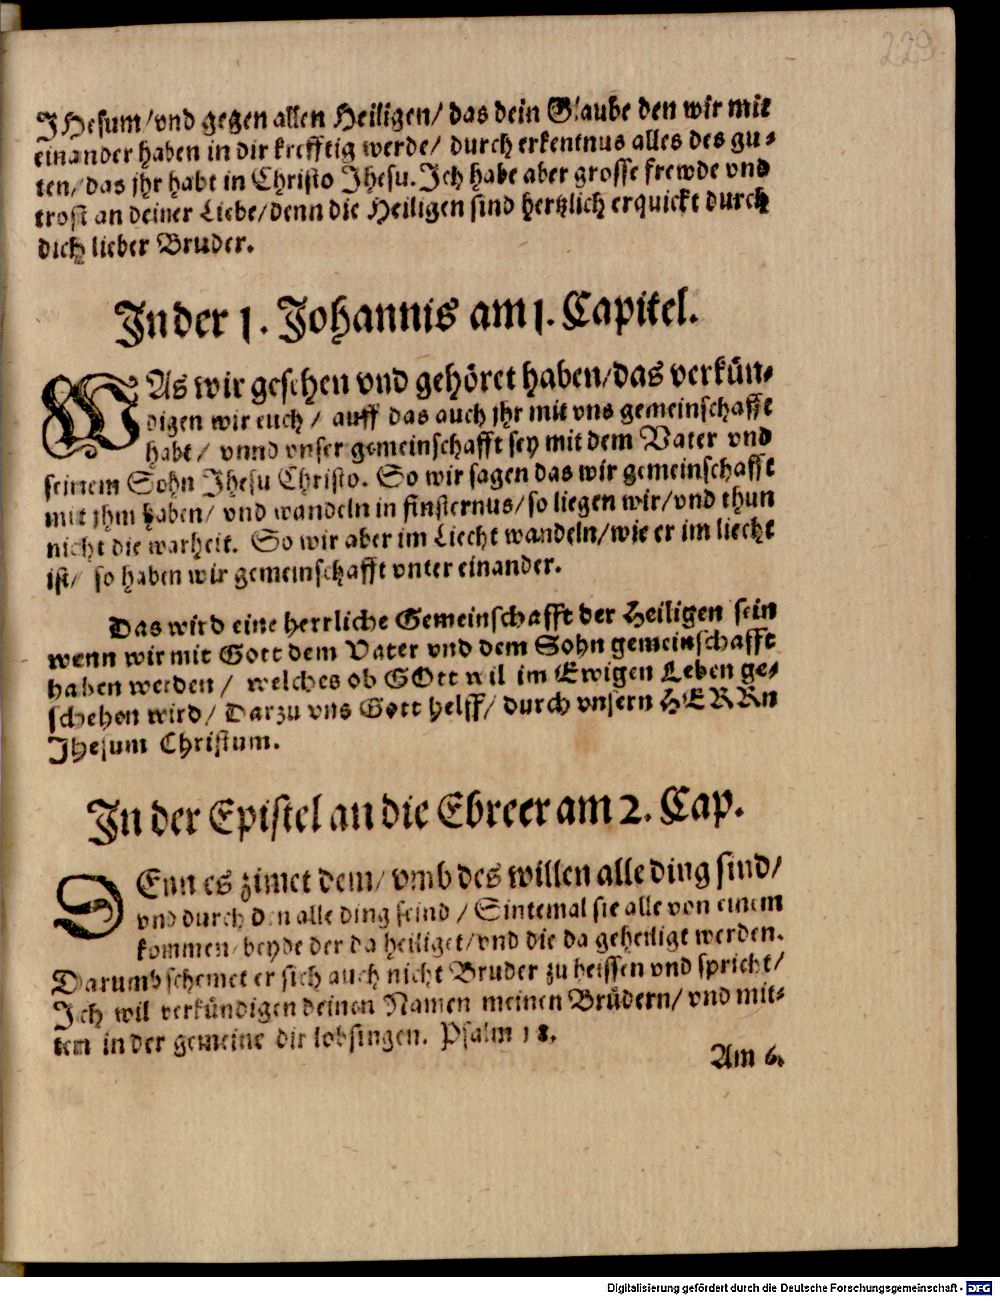 229
JHesum/vnd gegen allen Heiligen/ das dein Glaube den wir mit
einander haben in dir krefftig werde/ durch erkentnus alles des gu-
ten/das jhr habt in Christo Jhesu. Ich habe aber grosse frewde vnd
trost an deiner Liebe/denn die Heiligen sind hertzlich erquickt durch
dich lieber Bruder.
In der 1. Johannis am 1. Capitel.
WAs wir gesehen vnd gehöret haben/das verkün-
digen wir euch / auff das auch jhr mit vns gemeinschafft
habt / vnnd vnser gemeinschafft sey mit dem Vater vnd
seinem Sohn Jhesu Christo. So wir sagen das wir gemeinschafft
mit jhm haben/ vnd wandeln in finsternus/so liegen wir/vnd thun
nicht die warheit. So wir aber im Liecht wandeln/wie er im liecht
ist/ so haben wir gemeinschafft vnter einander.
Das wird eine herrliche Gemeinschafft der Heiligen sein
wenn wir mit Gott dem Vater vnd dem Sohn gemeinschafft
haben werden / welches ob GOtt wil im Ewigen Leben ge-
schehen wird/ Darzu vns Gott helff/ durch vnsern HERRn
Jhesum Christum.
In der Epistel an die Ebreer am 2. Cap.
DEnn es zimet dem/ vmb des willen alle ding sind/
vnd durch den alle ding seind / Sintemal sie alle von einem
kommen/beyde der da heiliget/vnd die da geheiligt werden.
Darumb schemet er sich auch nicht Bruder zu heissen vnd spricht/
Ich wil verkündigen deinen Namen meinen Brüdern/ vnd mit-
ten in der gemeine dir lobsingen. Psalm 18.
Am 6.
Digitalisierung gefördert durch die Deutsche Forschungsgemeinschaft - DFG